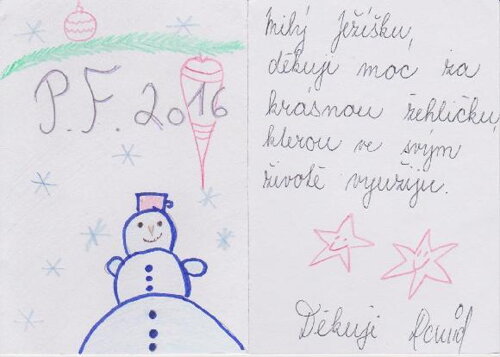 P.F. 2016
Milý Ježíšku,
děkuji moc za
krásnou žehličku
kterou ve svým
životě využiju.
Děkuji David